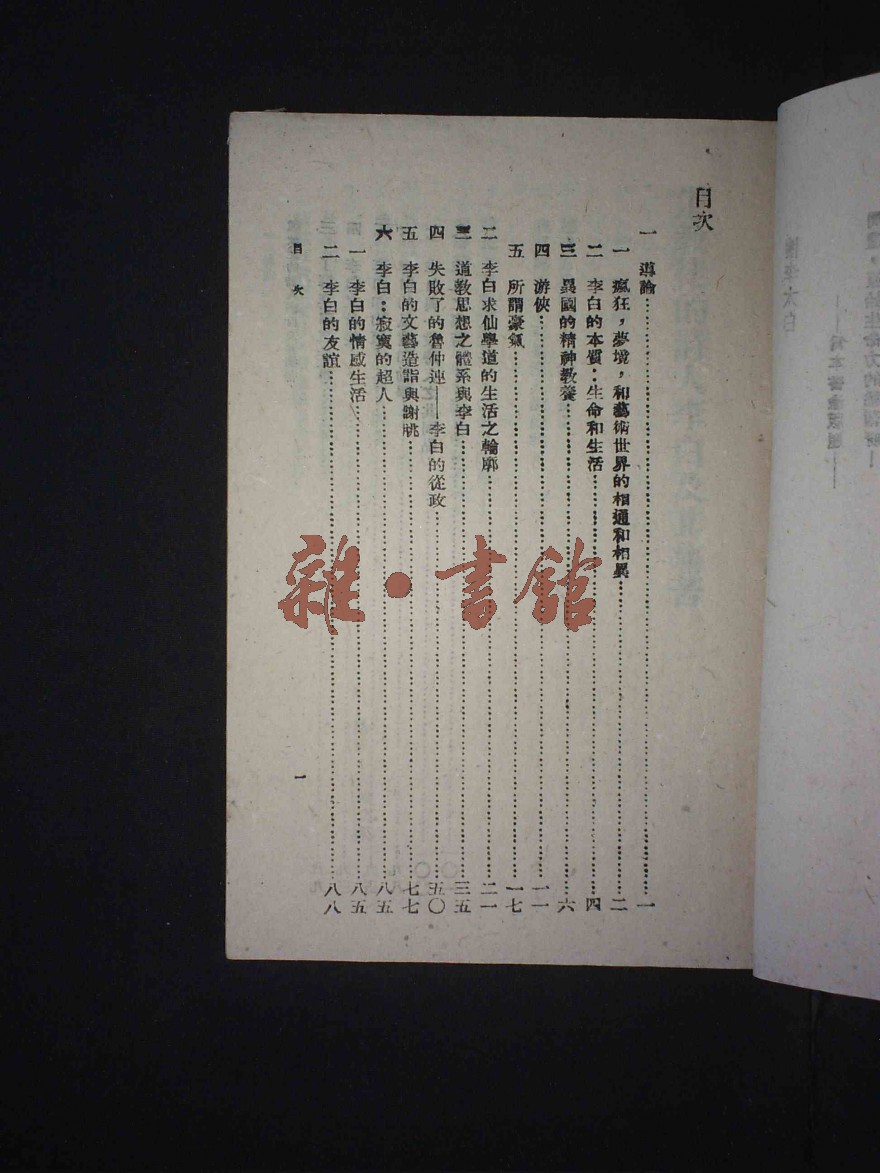 目次
一 導論……一
一 瘋狂，夢境，和藝術世界的相通和相異……二
二 李白的本質：生命和生活……四
三 異國的精神教養……六
四 游俠……一一
五 所謂豪氣……一七
二 李白求仙學道的生活之輪廓……二一
三 道教思想之體系與李白……三五
四 失敗了的魯仲連——李白的從政……五〇
五 李白的文藝造詣與謝朓……七七
六 李白：寂寞的超人……八五
一 李白的情感生活……八五
二 李白的友誼……八八
目次
一
雜·書館